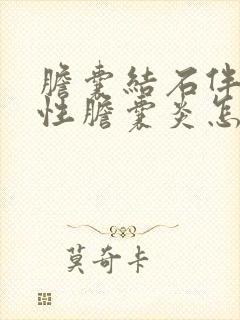 膽囊結石伴
性膽囊炎怎
莫奇卡